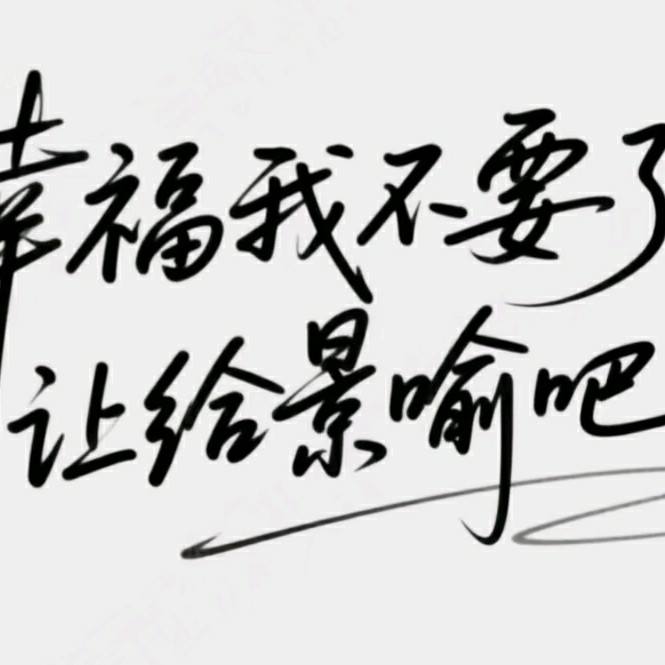 幸福我不要了
让给景喻吧